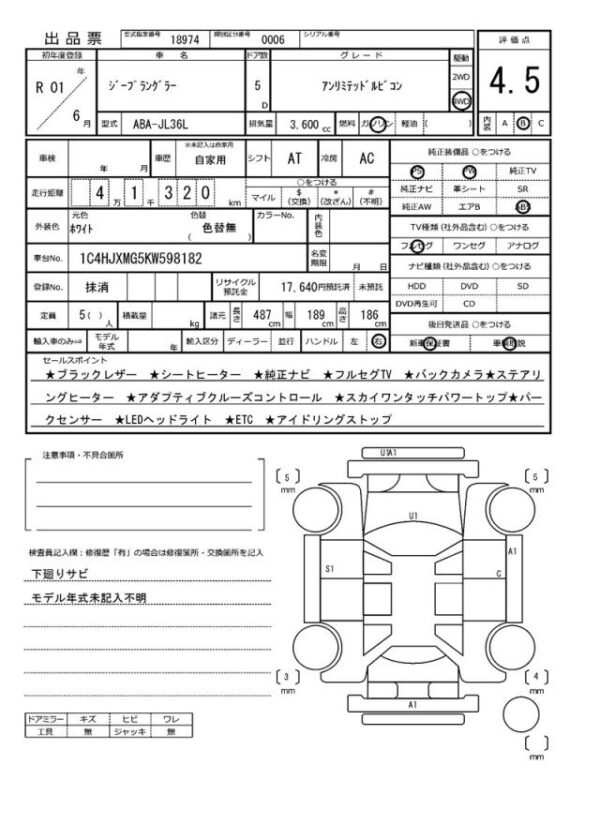 出品票 型式指定番号 18974 類別区分番号 0006 シリアル番号
評価点
初年度登録 車名 ドア数 グレード 駆動
R 01 年 6 月 ｼﾞｰﾌﾟﾗﾝｸﾞﾗｰ 5 D ｱﾝﾘﾐﾃｯﾄﾞﾙﾋﾞｺﾝ 2WD 4WD
4.5
型式 ABA-JL36L 排気量 3,600 cc 燃料 ガソリン 軽油 ( )
内装 A B C
車検 年 月 車歴 ※未記入は自家用 自家用 シフト AT 冷房 AC
走行距離 4万 1千 320 km ○をつける マイル $(交換) *(改ざん) #(不明)
外装色 元色 ﾎﾜｲﾄ 色替 ( 色替無 ) カラーNo. 内装色
車台No. 1C4HJXMG5KW598182 名変期限 月 日
登録No. 抹消 リサイクル預託金 17,640円預託済 未預託
定員 5( )人 積載量 kg 諸元 長さ 487cm 幅 189cm 高さ 186cm
輸入車のみ⇒ モデル年式 年 輸入区分 ディーラー 並行 ハンドル 左 右
純正装備品 ○をつける
PS PW 純正TV
純正ナビ 革シート SR
純正AW エアB ABS
TV種類 (社外品含む) ○をつける
フルセグ ワンセグ アナログ
ナビ種類 (社外品含む) ○をつける
HDD DVD SD
DVD再生可 CD
後日発送品 ○をつける
新車保証書 車輌取説
セールスポイント
★ブラックレザー ★シートヒーター ★純正ナビ ★フルセグTV ★バックカメラ★ステアリ
ングヒーター ★アダプティブクルーズコントロール ★スカイワンタッチパワートップ★パー
クセンサー ★LEDヘッドライト ★ETC ★アイドリングストップ
注意事項・不具合箇所
検査員記入欄：修復歴「有」の場合は修復箇所・交換箇所を記入
下廻りサビ
モデル年式未記入不明
ドアミラー キズ ヒビ ワレ
工具 無 ジャッキ 無
U1A1
( 5 ) mm
( 5 ) mm
U1
A1
S1
C
( 3 ) mm
( 4 ) mm
A1
( ) mm